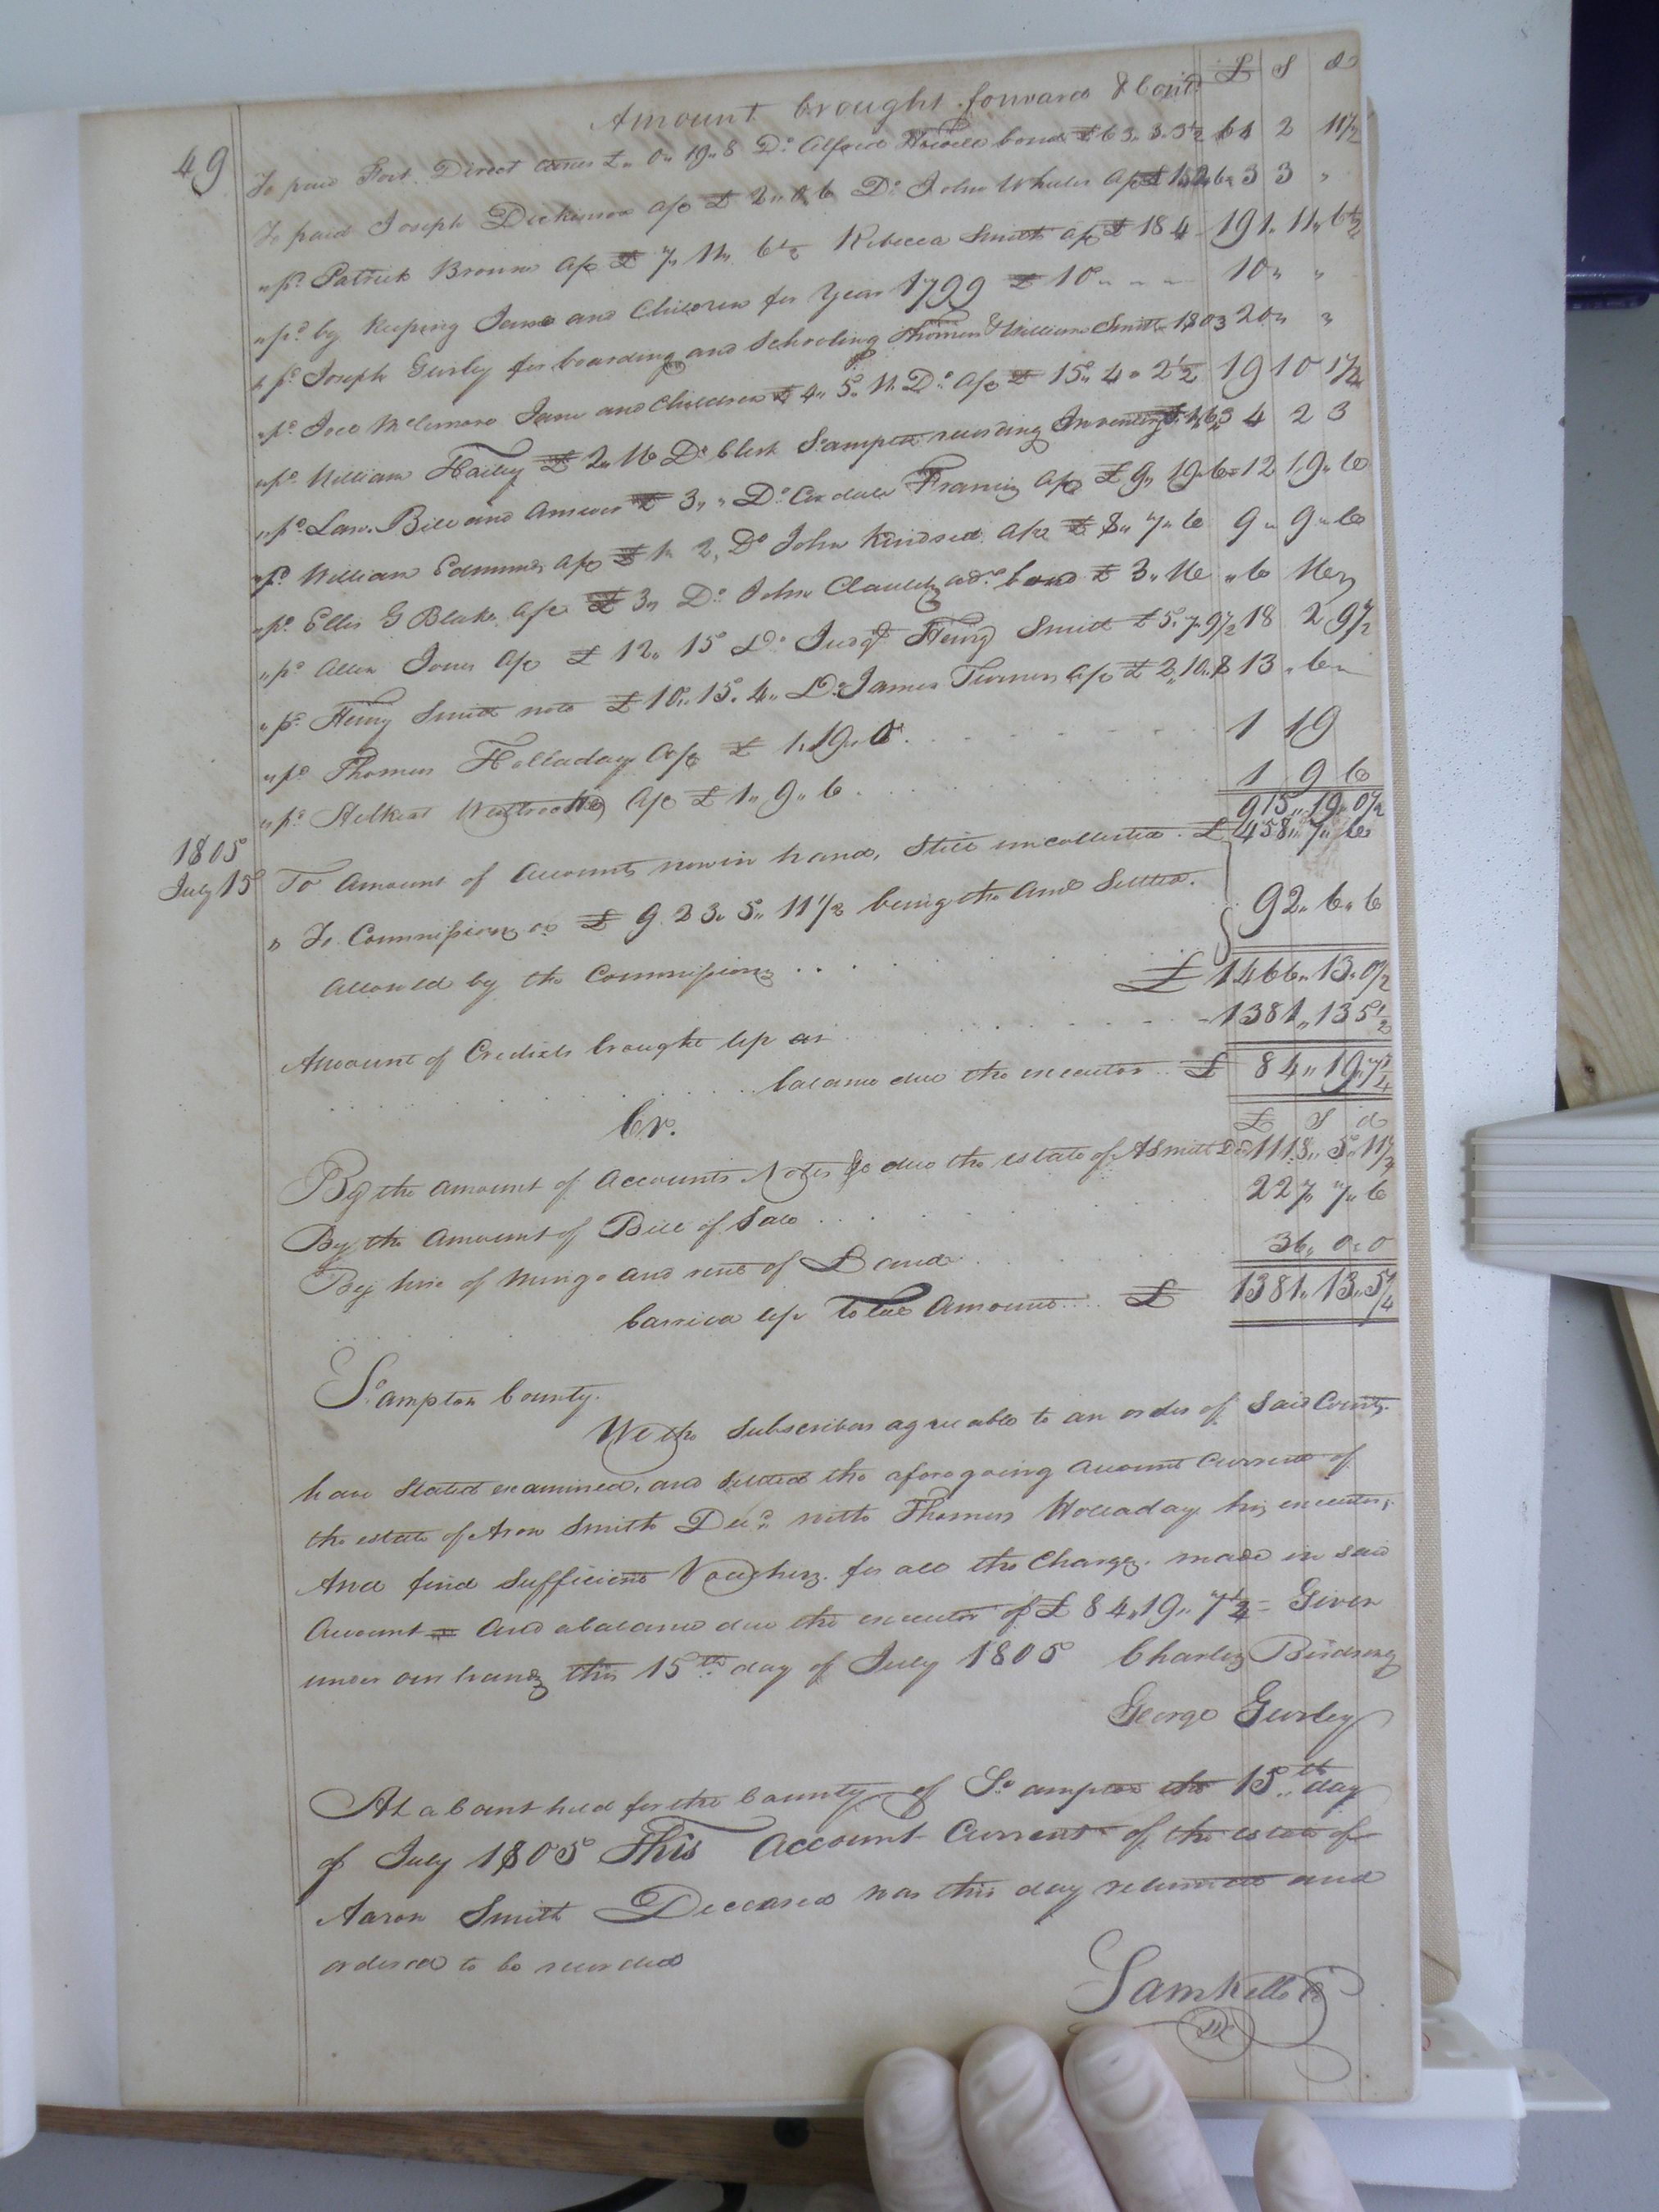 49
Amount brought forward & Cont^d £ S d
To paid Direct £,, 0,, 19,, 8 D^o Alfred Howell bond £ 63,, 3,, 3½ 64 2 11½
To paid Joseph Dickinson a/c £ 2,, 0,, 6 D^o John Wheler a/c £ 1,, 2,, 6 3 3 ,,
,, p^d Patrick Browne a/c £ 7,, 11,, 6½ Rebecca Smith a/c £ 184 191,, 11,, 6½
,, p^d by Keeping Jane and Children for Year 1799 £ 10 ,, 10,, ,,
,, p^d Joseph Gurley for boarding and Schooling Thomas & William Smith 1803 20,, ,,
,, p^d Joel McLemore Jane and Children £ 4,, 5,, 11 D^o a/c £ 15,, 4,, 2½ 19 10 1½
,, p^d William Hailey £ 2,, 16 D^o Clerk S^o ampton recording Inventory 4 2 3
,, p^d Law. Bill and Answer £ 3,, ,, D^o Francis a/c £ 9,, 19,, 6 12 19,, 6
,, p^d William Edmunds a/c £ 1,, 2,, D^o John Kindred a/c £ 8,, 7,, 6 9,, 9,, 6
,, p^d Ellis G Blake a/c £ 3,, D^o John Claud ad^r bond £ 3,, 16 ,, 6 16,,
,, p^d Allen Jones a/c £ 12,, 15 D^o Judg^t Henry Smith £ 5,, 7,, 9½ 18 2 9½
,, p^d Henry Smith note £ 10,, 15,, 4,, D^o James Turner a/c £ 2,, 10,, 8 13 ,, 6 ,,
,, p^d Thomas Holladay a/c £ 1,, 19,, 0 1 19
,, p^d a/c £ 1,, 9,, 6 1 9 6
915,, 19,, 0½
1805
July 15 To Amount of Accounts now in hand, Still uncollected £ 458,, 7,, 6
,, To Commissions on £ 923,, 5,, 11½ being the Am^t Settled.
Allowed by the Commissioners 92,, 6,, 6
£ 1466,, 13,, 0½
Amount of Credits brought up as 1381,, 13 5½
balance due the executor £ 84,, 19,, 7¼
Cr. £ S d
By the Amount of Accounts Notes &c due the estate of A Smith D^d 1118,, 5,, 11¼
By the Amount of Bill of Sale 227,, 7,, 6
By hire of Mingo and rent of Land 36,, 0,, 0
Carried up Total Amount £ 1381,, 13,, 5¼
S^o ampton County.
We the Subscribers agreeable to an order of Said County
have Stated examined, and Settled the aforegoing Account Current of
the estate of Aron Smith Dec^d with Thomas Holladay his executor;
And find Sufficient Vouchers for all the Charges made in said
Account and a balance due the executor of £ 84,, 19,, 7¼ = Given
under our hands this 15^th day of July 1805 Charles Birdsong
George Gurley
At a Court held for the County of S^o ampton the 15^th day
of July 1805 This Account Current of the estate of
Aaron Smith Deceased was this day returned and
ordered to be recorded
Sam Kello
DC